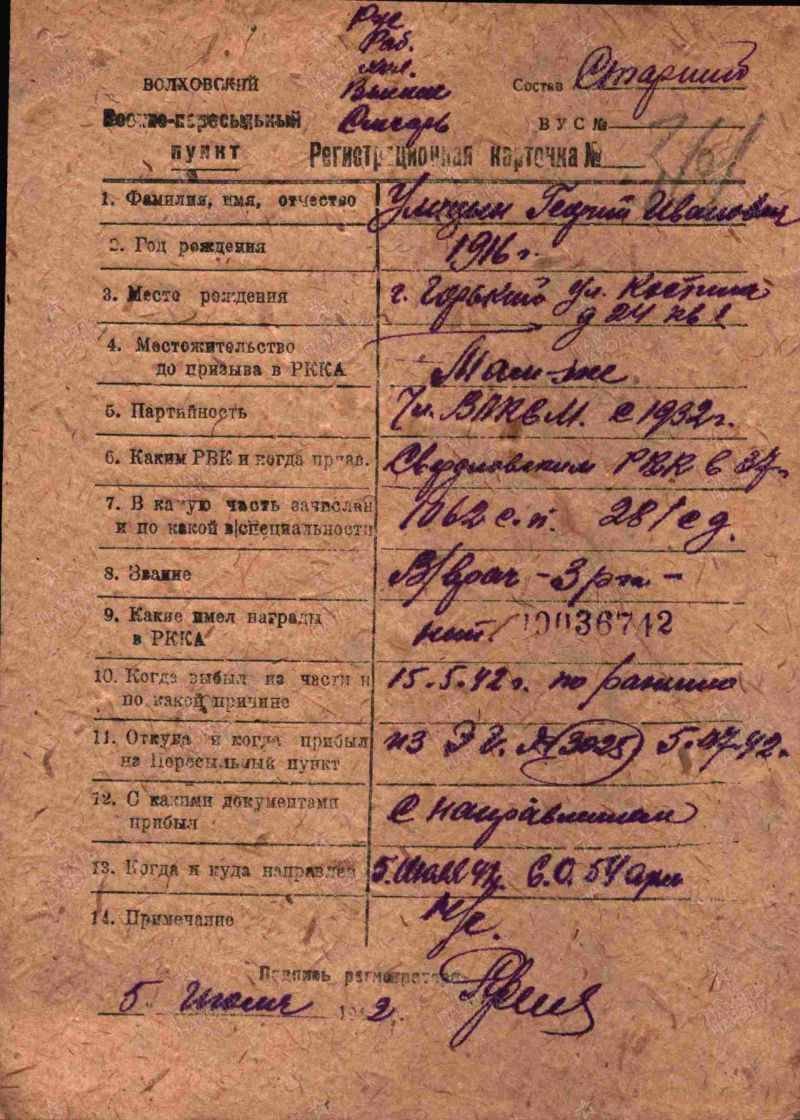 Рус
Раб.
ВОЛХОВСКИЙ
Состав Старший
Военно-пересыльный
Слесарь
ВУС №
ПУНКТ
Регистрационная карточка №
1. Фамилия, имя, отчество Георгий Иванович
2. Год рождения 1916 г.
3. Место рождения г. Горький ул. Костина
д 24 кв 1
4. Местожительство
до призыва в РККА Там-же
5. Партийность Чл. ВПКБМ. с 1932 г.
6. Каким РВК и когда призв. Свердловским РВК в 37 г.
7. В какую часть зачислен
и по какой в/специальности 1062 с.п. 281 с д.
8. Звание В/врач - 3 р - 
9. Какие имел награды
в РККА нет. 10036742
10. Когда выбыл из части и
по какой причине 15.5.42 г. по ранению
11. Откуда и когда прибыл
на Пересыльный пункт из Э Г. № 3025 5.07.42 г.
12. С какими документами
прибыл с направлением
13. Когда и куда направлен 5. Июля 42 С.О. 54 арм
14. Примечание
Подпись регистратора
5. Июля 1942.